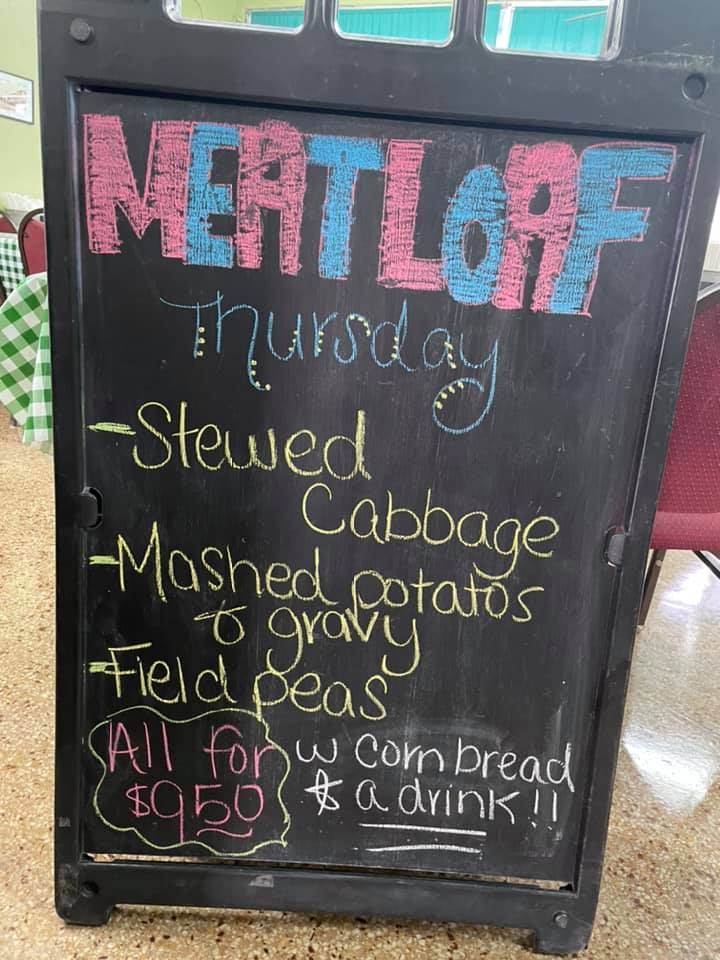 MEATLOAF
Thursday
-Stewed
Cabbage
-Mashed potatos
& gravy
-Field peas
All for
$9.50
w corn bread
& a drink!!